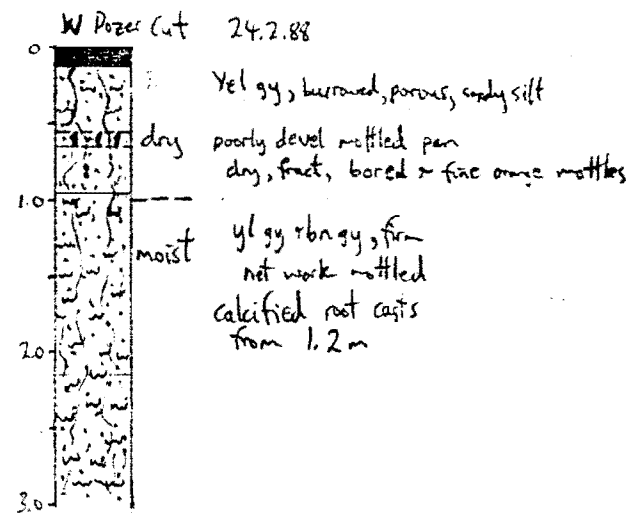 W Dozer Cut 24.2.88
0
Yel gy, burrowed, porous, sandy silt
dry
poorly devel mottled pan
dry, fract, bored + fine orange mottles
1.0
moist
yl gy + bn gy, firm
net work mottled
calcified root casts
from 1.2 m
2.0
3.0